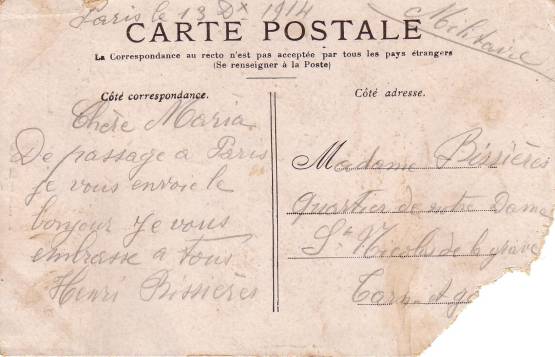 Paris le 13 Dx 1914
Militaire
CARTE POSTALE
La Correspondance au recto n'est pas acceptée par tous les pays étrangers
(Se renseigner à la Poste)
Côté correspondance.
Chère Maria
De passage a Paris
je vous envoie le
bonjour je vous
embrasse a tous
Henri Bissières
Côté adresse.
Madame Bissières
quartier de notre Dame
St Nicolas de la grave
Tarn et ga